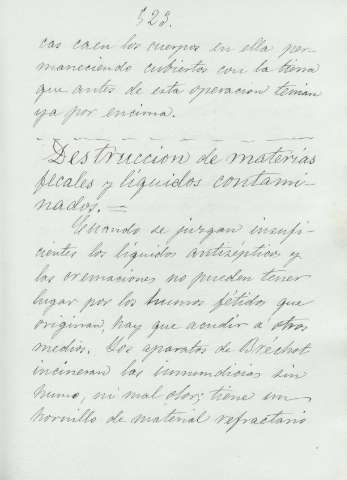 523.
cas caen los cuerpos en ella per-
maneciendo cubiertos con la tierra
que antes de esta operacion tenian
ya por encima.
Destruccion de materias
fecales y líquidos contami-
nados. =
Cuando se juzgan insufi-
cientes los líquidos antisépticos y
las cremaciones no pueden tener
lugar por los humos fétidos que
originan, hay que acudir á otros
medios. Los aparatos de Bréchot
incineran las inmundicias sin
humo, ni mal olor; tiene un
hornillo de material refractario